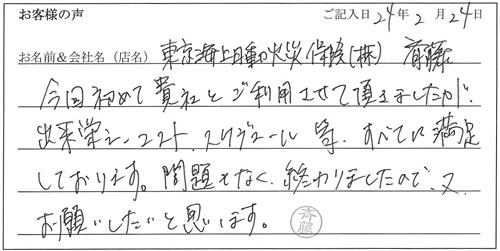 お客様の声 ご記入日 24年 2月 24日
お名前&会社名(店名) 東京海上日動火災保険(株) 斉藤
今回初めて貴社をご利用させて頂きましたが、
出来栄え、コスト、スケジュール 等、すべてに満足
しております。問題もなく、終わりましたので、又、
お願いしたいと思います。 斉藤